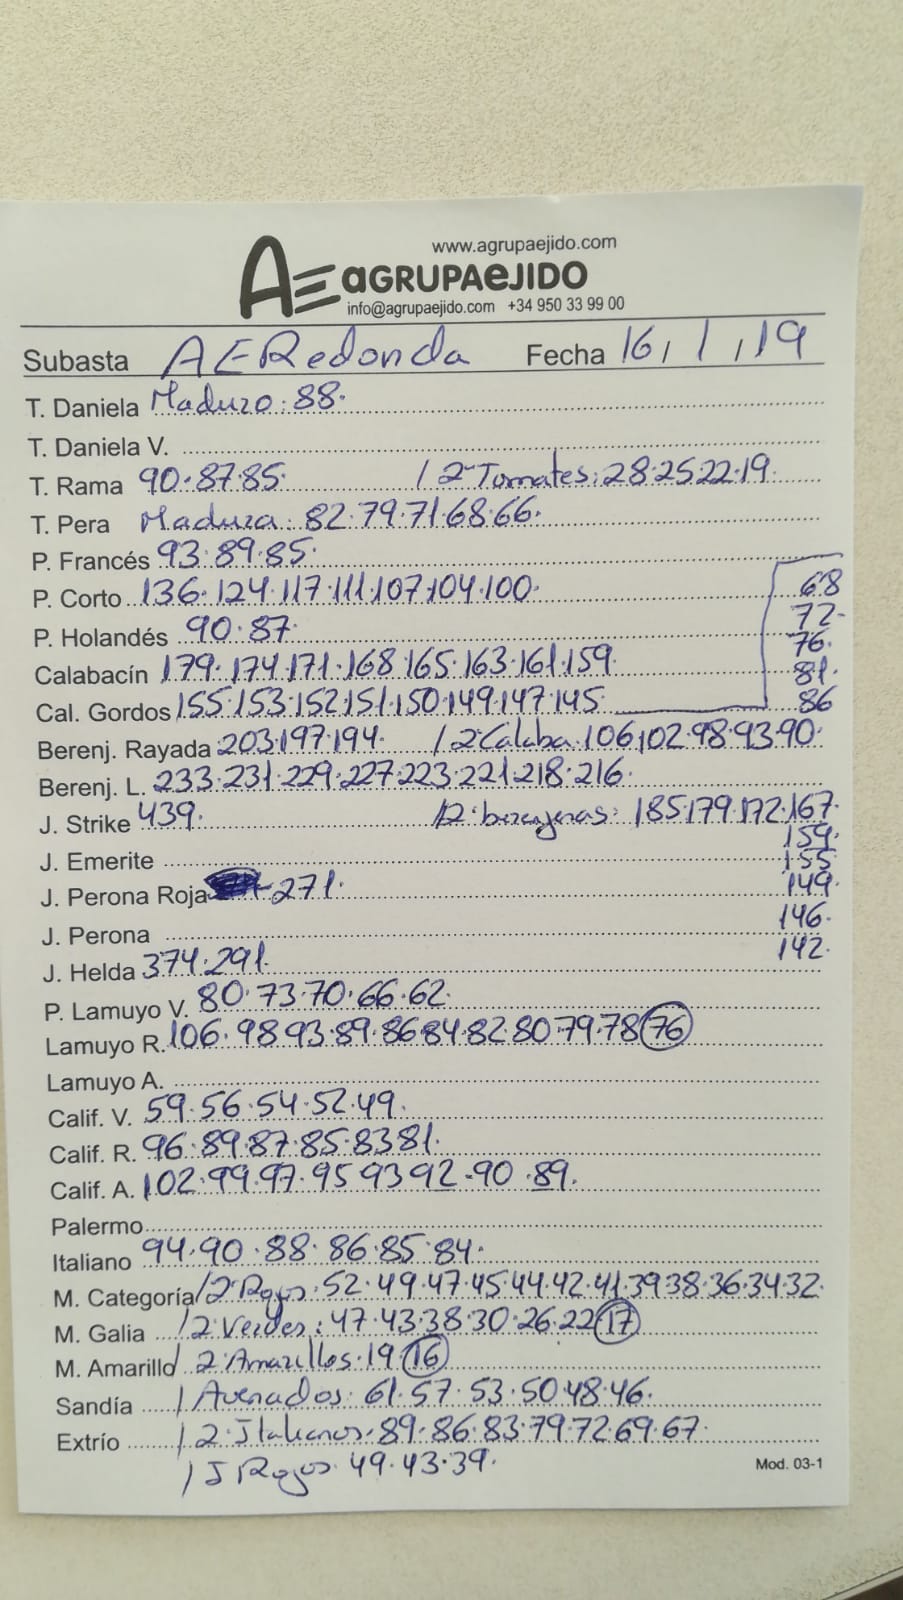 www.agrupaejido.com
AE aGRUPAeJIDO
info@agrupaejido.com +34 950 33 99 00
Subasta AERedonda Fecha 16/1/19
T. Daniela Maduro: 88.
T. Daniela V.
T. Rama 90.87.85. / 2ª Tomates: 28.25.22.19.
T. Pera Madura: 82.79.71.68.66.
P. Francés 93.89.85.
P. Corto 136.124.117.111.107.104.100. 68
P. Holandés 90.87. 72-
76.
Calabacín 179.174.171.168.165.163.161.159. 81.
Cal. Gordos 155.153.152.151.150.149.147.145 86
Berenj. Rayada 203.197.194. / 2ª Calaba. 106.102.98.93.90.
Berenj. L. 233.231.229.227.223.221.218.216.
J. Strike 439. / 2ª berenjenas: 185.179.172.167.
159.
J. Emerite 155
J. Perona Roja 271. 149.
J. Perona 146.
J. Helda 374.291. 142.
P. Lamuyo V. 80.73.70.66.62.
Lamuyo R. 106.98.93.89.86.84.82.80.79.78.76
Lamuyo A.
Calif. V. 59.56.54.52.49.
Calif. R. 96.89.87.85.83.81.
Calif. A. 102.99.97.95.93.92.90.89.
Palermo
Italiano 94.90.88.86.85.84.
M. Categoría / 2ª Rojos: 52.49.47.45.44.42.41.39.38.36.34.32.
M. Galia / 2ª Verdes: 47.43.38.30.26.22.17
M. Amarillo / 2 Amarillos.19.16
Sandía / Asenados: 61.57.53.50.48.46.
Extrío / 2ª Italianos.89.86.83.79.72.69.67.
/ J Rojos 49.43.39.
Mod. 03-1